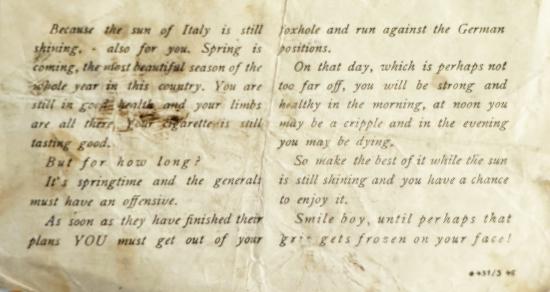 Because the sun of Italy is still
shining, - also for you. Spring is
coming, the most beautiful season of the
whole year in this country. You are
still in good health and your limbs
are all there. Your cigarette is still
tasting good.
But for how long?
It's springtime and the generals
must have an offensive.
As soon as they have finished their
plans YOU must get out of your
foxhole and run against the German
positions.
On that day, which is perhaps not
too far off, you will be strong and
healthy in the morning, at noon you
may be a cripple and in the evening
you may be dying.
So make the best of it while the sun
is still shining and you have a chance
to enjoy it.
Smile boy, until perhaps that
grin gets frozen on your face!